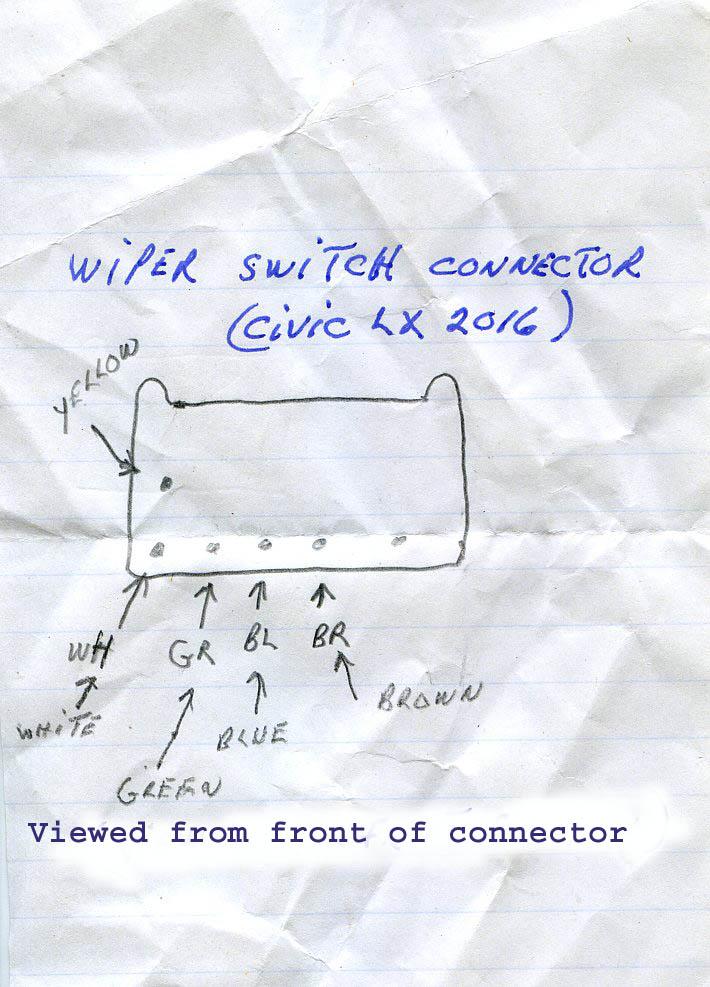 WIPER SWITCH CONNECTOR
(CIVIC LX 2016)
YELLOW
WH GR BL BR
WHITE BLUE BROWN
GREEN
Viewed from front of connector